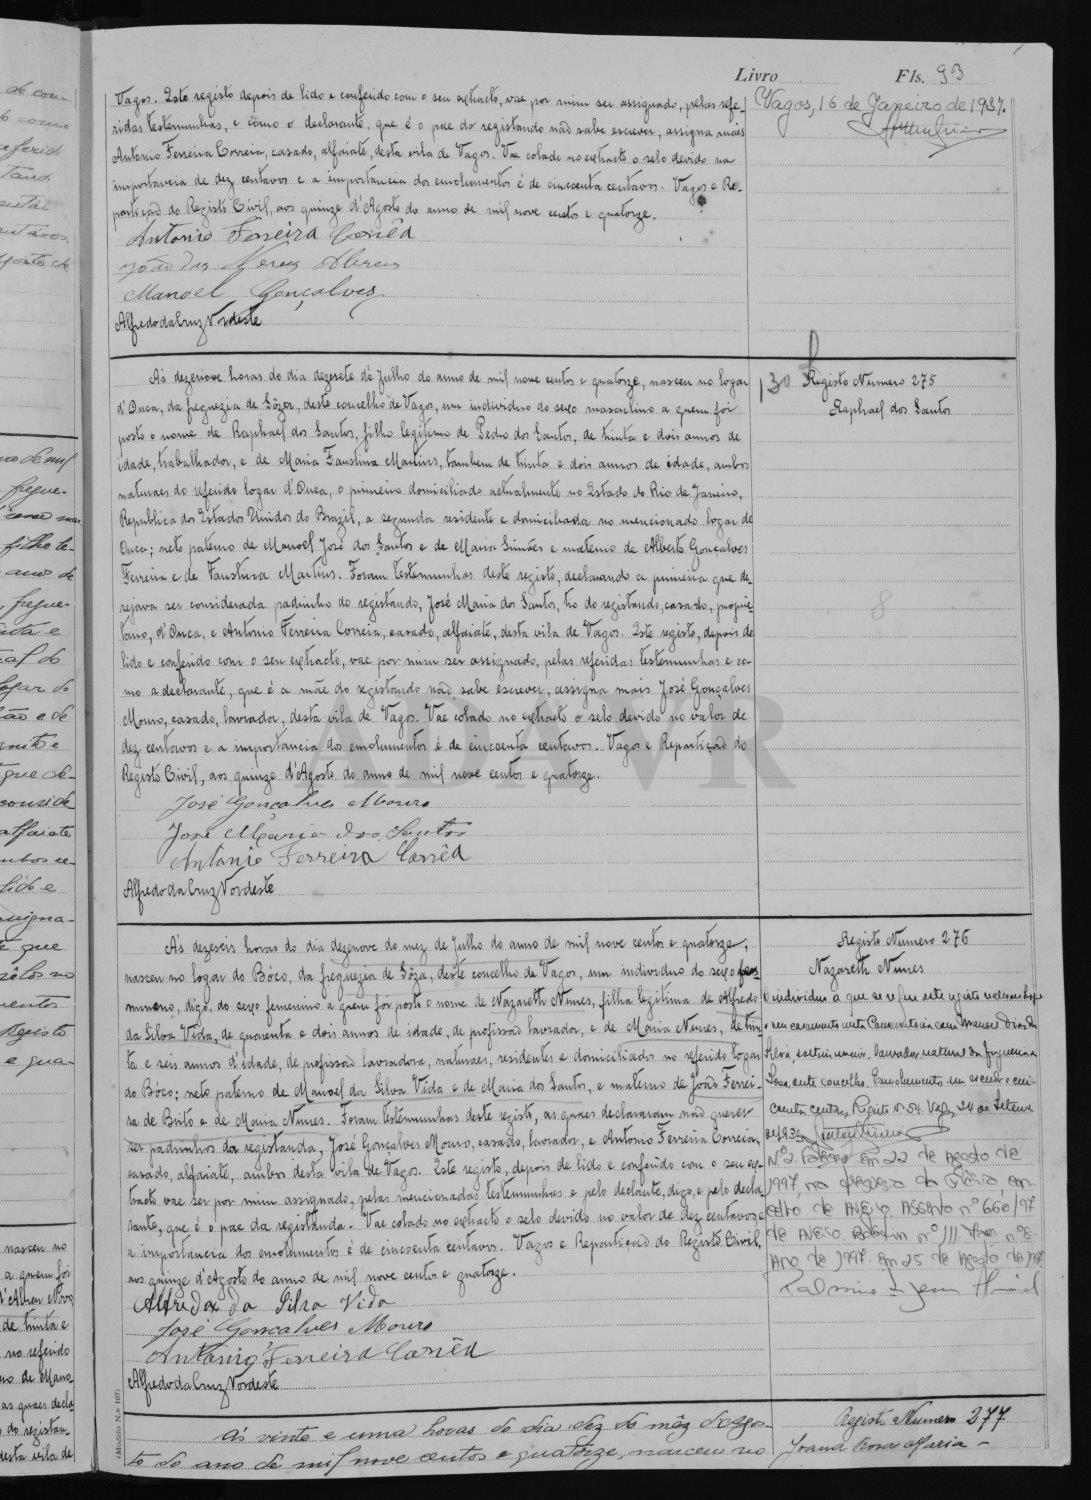 Livro Fls. 93
Vagos. Este registo depois de lido e conferido com o seu extracto, vae por mim ser assignado, pelas refe-
ridas testemunhas, e como o declarante, que é o pae do registando não sabe escrever, assigna mais
Antonio Ferreira Correia, casado, alfaiate, desta vila de Vagos. Vae colado no extracto o selo devido na
importancia de dez centavos e a importancia dos emolumentos é de cincoenta centavos. Vagos e Re-
partição do Registo Civil, aos quinze d'Agosto do anno de mil nove centos e quatorze.
Antonio Ferreira Corrêa
João das Neves Abreu
Manoel Gonçalves
Alfredo da Cruz Nordeste
Vagos, 16 de Janeiro de 1937.
Ás dezenove horas do dia dezesete de Julho do anno de mil nove centos e quatorze, nasceu no logar
d'Ouca, da freguezia de Sôza, deste concelho de Vagos, um individuo do sexo masculino a quem foi
posto o nome de Raphael dos Santos, filho legitimo de Pedro dos Santos, de trinta e dois annos de
idade, trabalhador, e de Maria Faustina Martins, tambem de trinta e dois annos de idade, ambos
naturaes do referido logar d'Ouca, o primeiro domiciliado actualmente no Estado do Rio de Janeiro,
Republica dos Estados Unidos do Brazil, a segunda residente e domiciliada no mencionado logar de
Ouca; neto paterno de Manoel José dos Santos e de Maria Simões e materno de Alberto Gonçalves
Ferreira e de Faustina Martins. Foram testemunhas deste registo, declarando a primeira que de-
sejava ser considerada padrinho do registando, José Maria dos Santos, tio do registando, casado, proprie-
tario, d'Ouca, e Antonio Ferreira Correia, casado, alfaiate, desta vila de Vagos. Este registo, depois de
lido e conferido com o seu extracto, vae por mim ser assignado, pelas referidas testemunhas e co-
mo a declarante, que é a mãe do registando não sabe escrever, assigna mais José Gonçalves
Mouro, casado, lavrador, desta vila de Vagos. Vae colado no extracto o selo devido no valor de
dez centavos e a importancia dos emolumentos é de cincoenta centavos. Vagos e Repartição do
Registo Civil, aos quinze d'Agosto do anno de mil nove centos e quatorze.
José Gonçalves Mouro
José Maria dos Santos
Antonio Ferreira Corrêa
Alfredo da Cruz Nordeste
130
Registo Numero 275
Raphael dos Santos
8
ADAVR
Ás dezeseis horas do dia dezenove do mez de Julho do anno de mil nove centos e quatorze,
nasceu no logar do Bôco, da freguezia de Sôza, deste concelho de Vagos, um individuo do sexo
digo, do sexo femenino a quem foi posto o nome de Nazareth Nunes, filha legitima de Alfredo
da Silva Vida, de quarenta e dois annos de idade, de profissão lavrador, e de Maria Nunes, de trin-
ta e seis annos d'idade, de profissão lavradora, naturaes, residentes e domiciliados no referido logar
do Bôco; neto paterno de Manoel da Silva Vida e de Maria dos Santos, e materno de João Ferrei-
ra de Brito e de Maria Nunes. Foram testemunhas deste registo, as quaes declararam não querer
ser padrinhos da registanda, José Gonçalves Mouro, casado, lavrador, e Antonio Ferreira Correia,
casado, alfaiate, ambos desta vila de Vagos. Este registo, depois de lido e conferido com o seu ex-
tracto vae ser por mim assignado, pelas mencionadas testemunhas e pelo declante, digo, e pelo decla-
rante, que é o pae da registanda. Vae colado no extracto o selo devido no valor de dez centavos e
a importancia dos emolumentos é de cincoenta centavos. Vagos e Repartição do Registo Civil,
aos quinze d'Agosto do anno de mil nove centos e quatorze.
Alfredo da Silva Vida
José Gonçalves Mouro
Antonio Ferreira Corrêa
Alfredo da Cruz Nordeste
Registo Numero 276
Nazareth Nunes
O individuo a que se refere este registo
o seu casamento nesta Conservatoria com Manuel
Silva, solteiro, lavrador natural da freguezia de
Sosa, deste concelho. Emolumentos um escudo e cin-
coenta centavos. Registo nº 54. Vagos, 24 de Setembro
Nº 2. Faleceu em 22 de Agosto de
1997, na freguesia da Glória, con-
celho de Aveiro. Assento nº 660/97
de Aveiro. Boletim nº 111 nº 8
Ano de 1997. Em 25 de Agosto de 1997
(Modelo N.º 107)
Ás vinte e uma horas do dia dez do mêz d'Agos-
to do ano de mil nove centos e quatorze, nasceu no
Registo Numero 277
Joana Rosa Maria